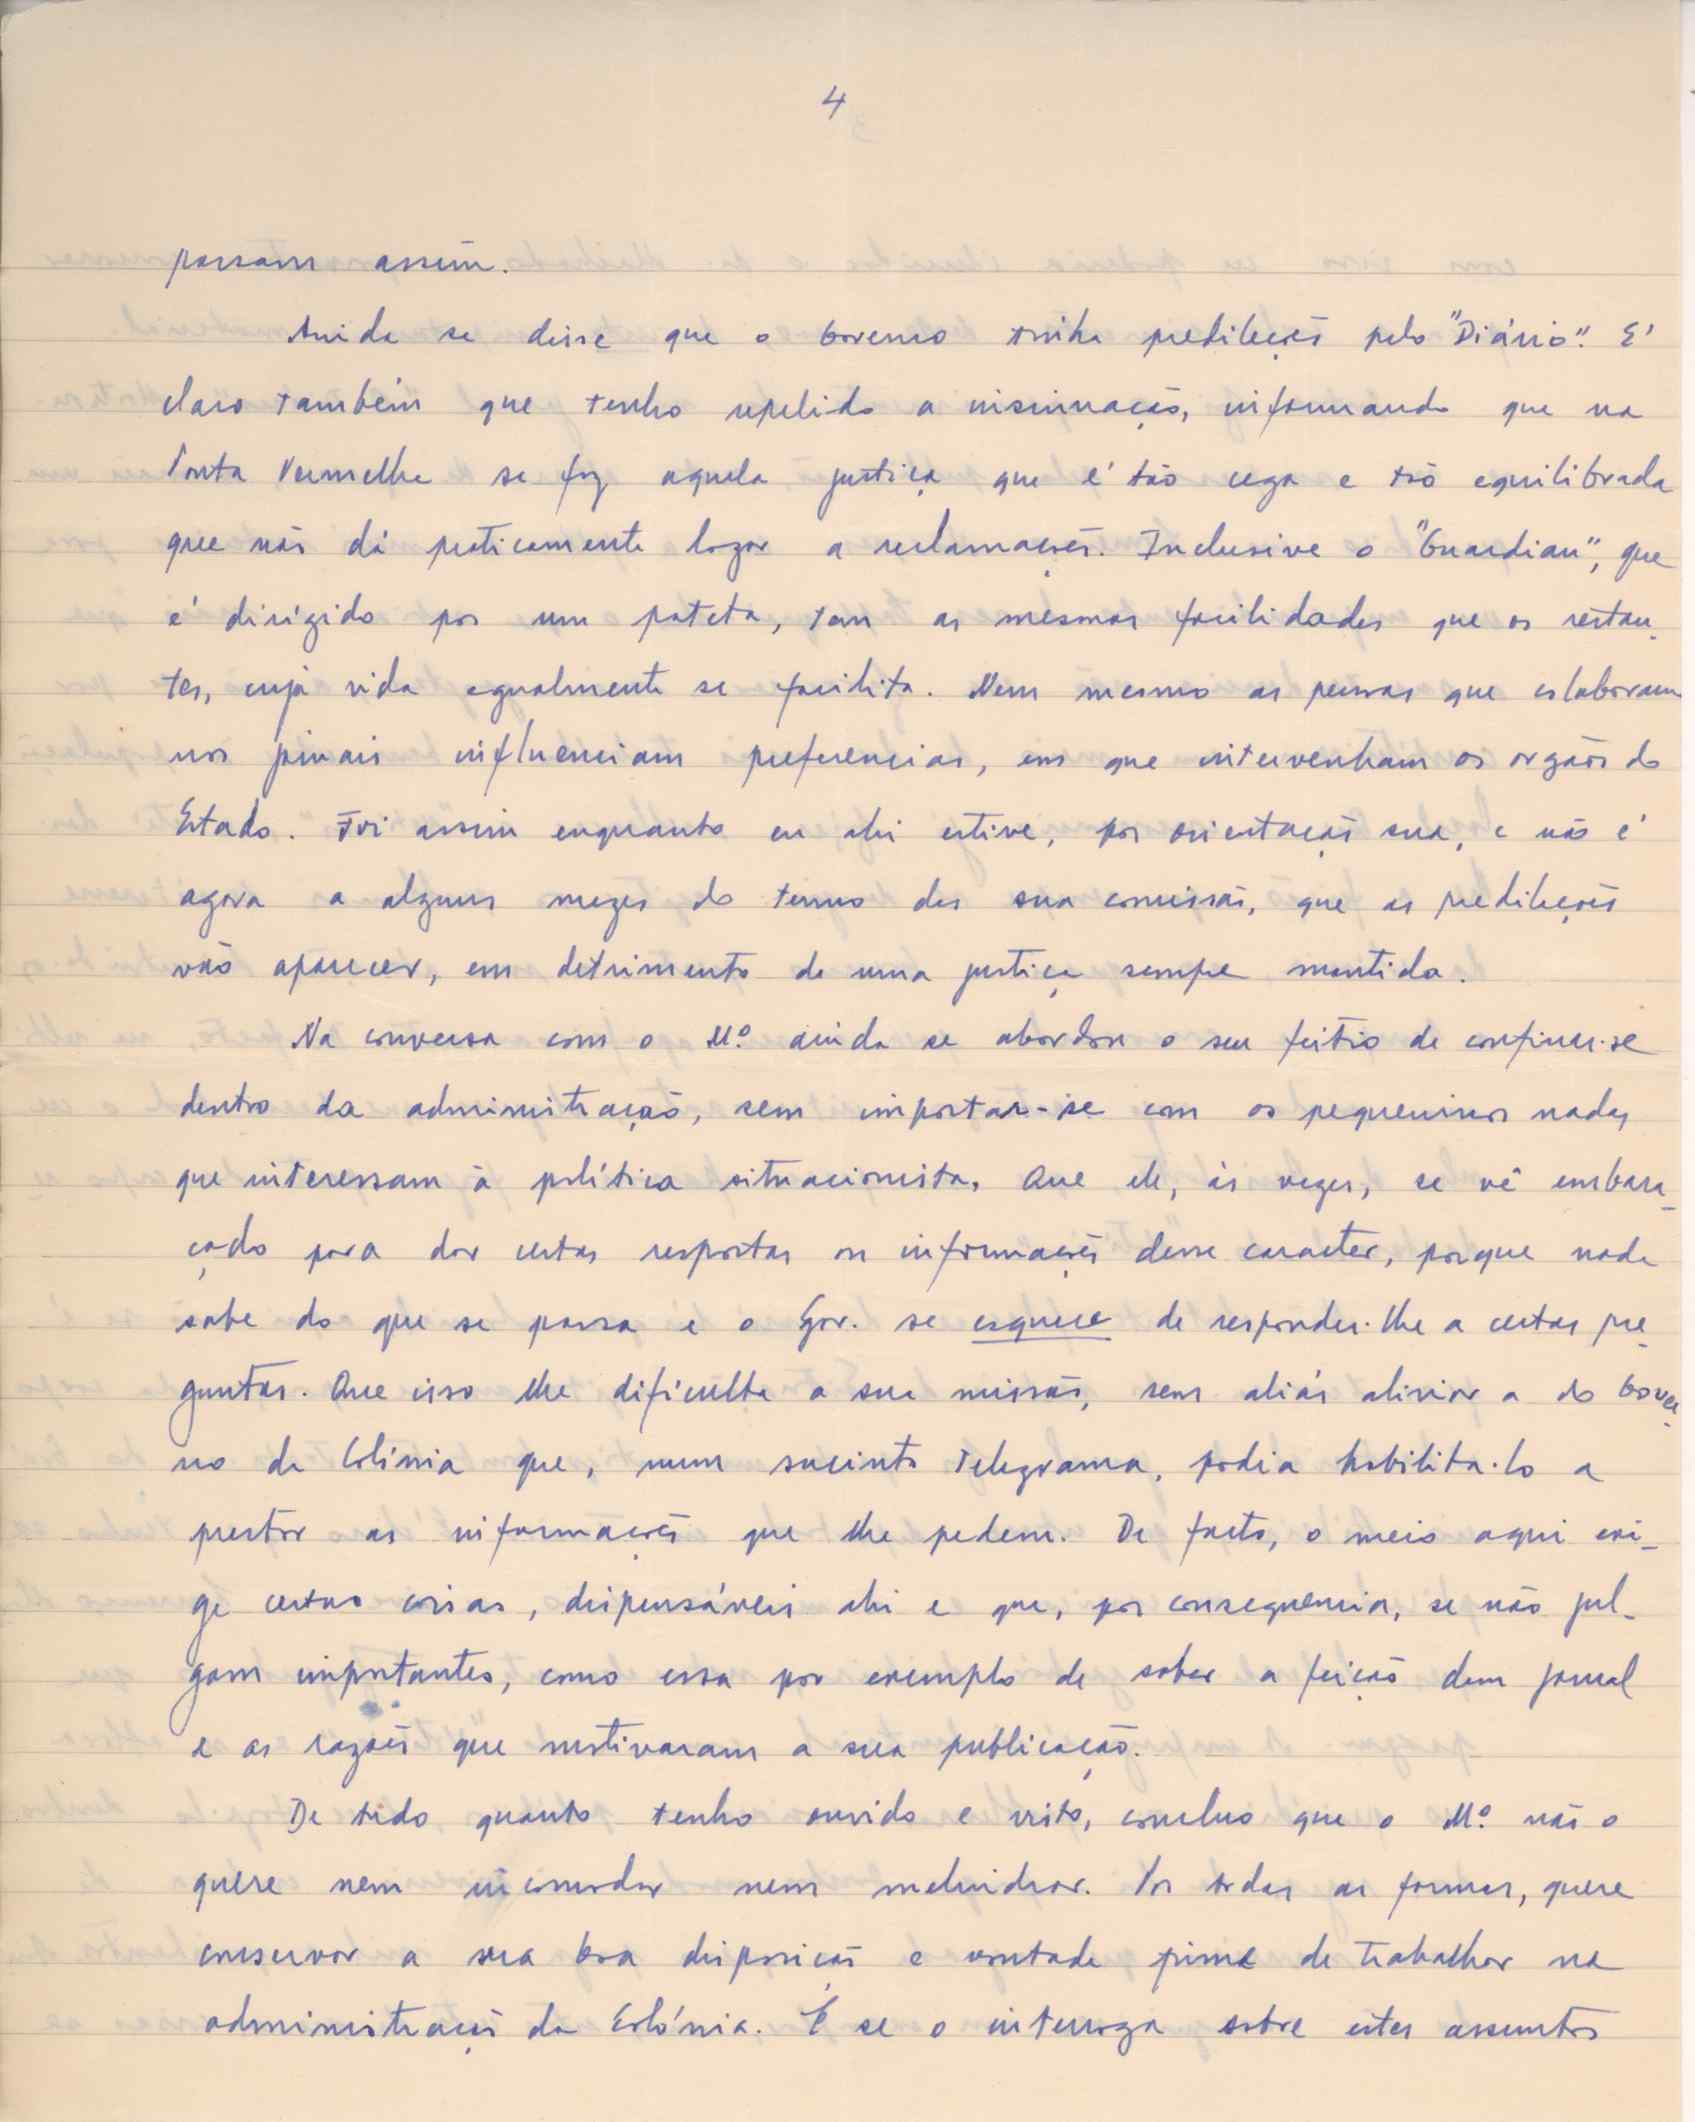 4
passam assim.
Ainda se disse que o Governo tinha predileções pelo "Diário". E'
claro também que tenho repelido a insinuação, informando que na
Ponta Vermelha se faz aquela justiça que é tão cega e tão equilibrada
que não dá praticamente logar a reclamações. Inclusive o "Guardian", que
é dirigido por um pateta, tem as mesmas facilidades que os restan-
tes, cuja vida egualmente se facilita. Nem mesmo as pessoas que colaboram
nos jornais influenciam preferencias, em que intervenham os orgãos do
Estado. Foi assim enquanto eu ahi estive, por orientação sua, e não é
agora a alguns mezes do termo da sua comissão, que as predileções
vão aparecer, em detrimento de uma justiça sempre mantida.
Na conversa com o Mº. ainda se abordou o seu feitio de confinar-se
dentro da administração, sem importar-se com os pequeninos nadas
que interessam à política situacionista. Que ele, às vezes, se vê embara-
çado para dar certas respostas ou informações desse caracter, porque nada
sabe do que se passa e o Gov. se esquece de responder-lhe a certas pre-
guntas. Que isso lhe dificulta a sua missão, sem aliás aliviar a do Gover-
no da Colónia que, num sucinto telegrama, podia habilita-lo a
prestar as informações que lhe pedem. De facto, o meio aqui exi-
ge certas coisas, dispensáveis ahi e que, por consequencia, se não jul-
gam importantes, como essa por exemplo de saber a feição dum jornal
e as razões que motivaram a sua publicação.
De tudo quanto tenho ouvido e visto, concluo que o Mº. não o
quere nem incomodar nem melindrar. Por todas as formas, quere
conservar a sua boa disposição e vontade firme de trabalhar na
administração da Colónia. E se o interroga sobre estes assuntos